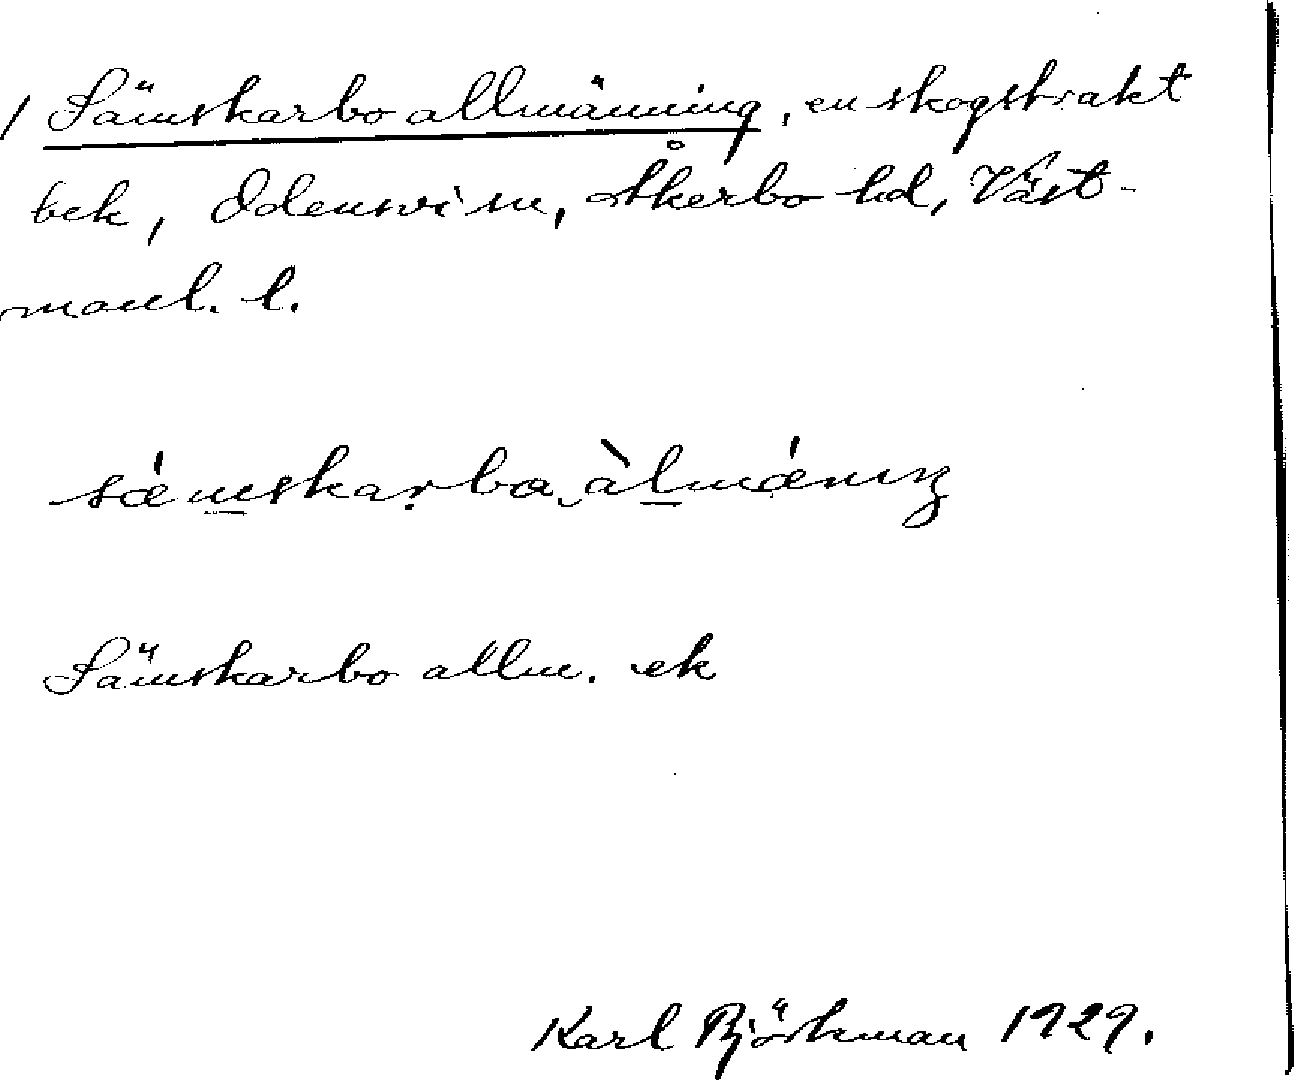 / Sämskarbo allmänning, en skogstrakt
bek, Odensvi sn, Åkerbo hd, Väst-
manl. l.
sǽmskarba àlmǽniŋ
Sämskarbo allm. ek
Karl Björkman 1929.